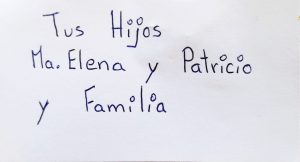 Tus Hijos
Ma. Elena y Patricio
y Familia